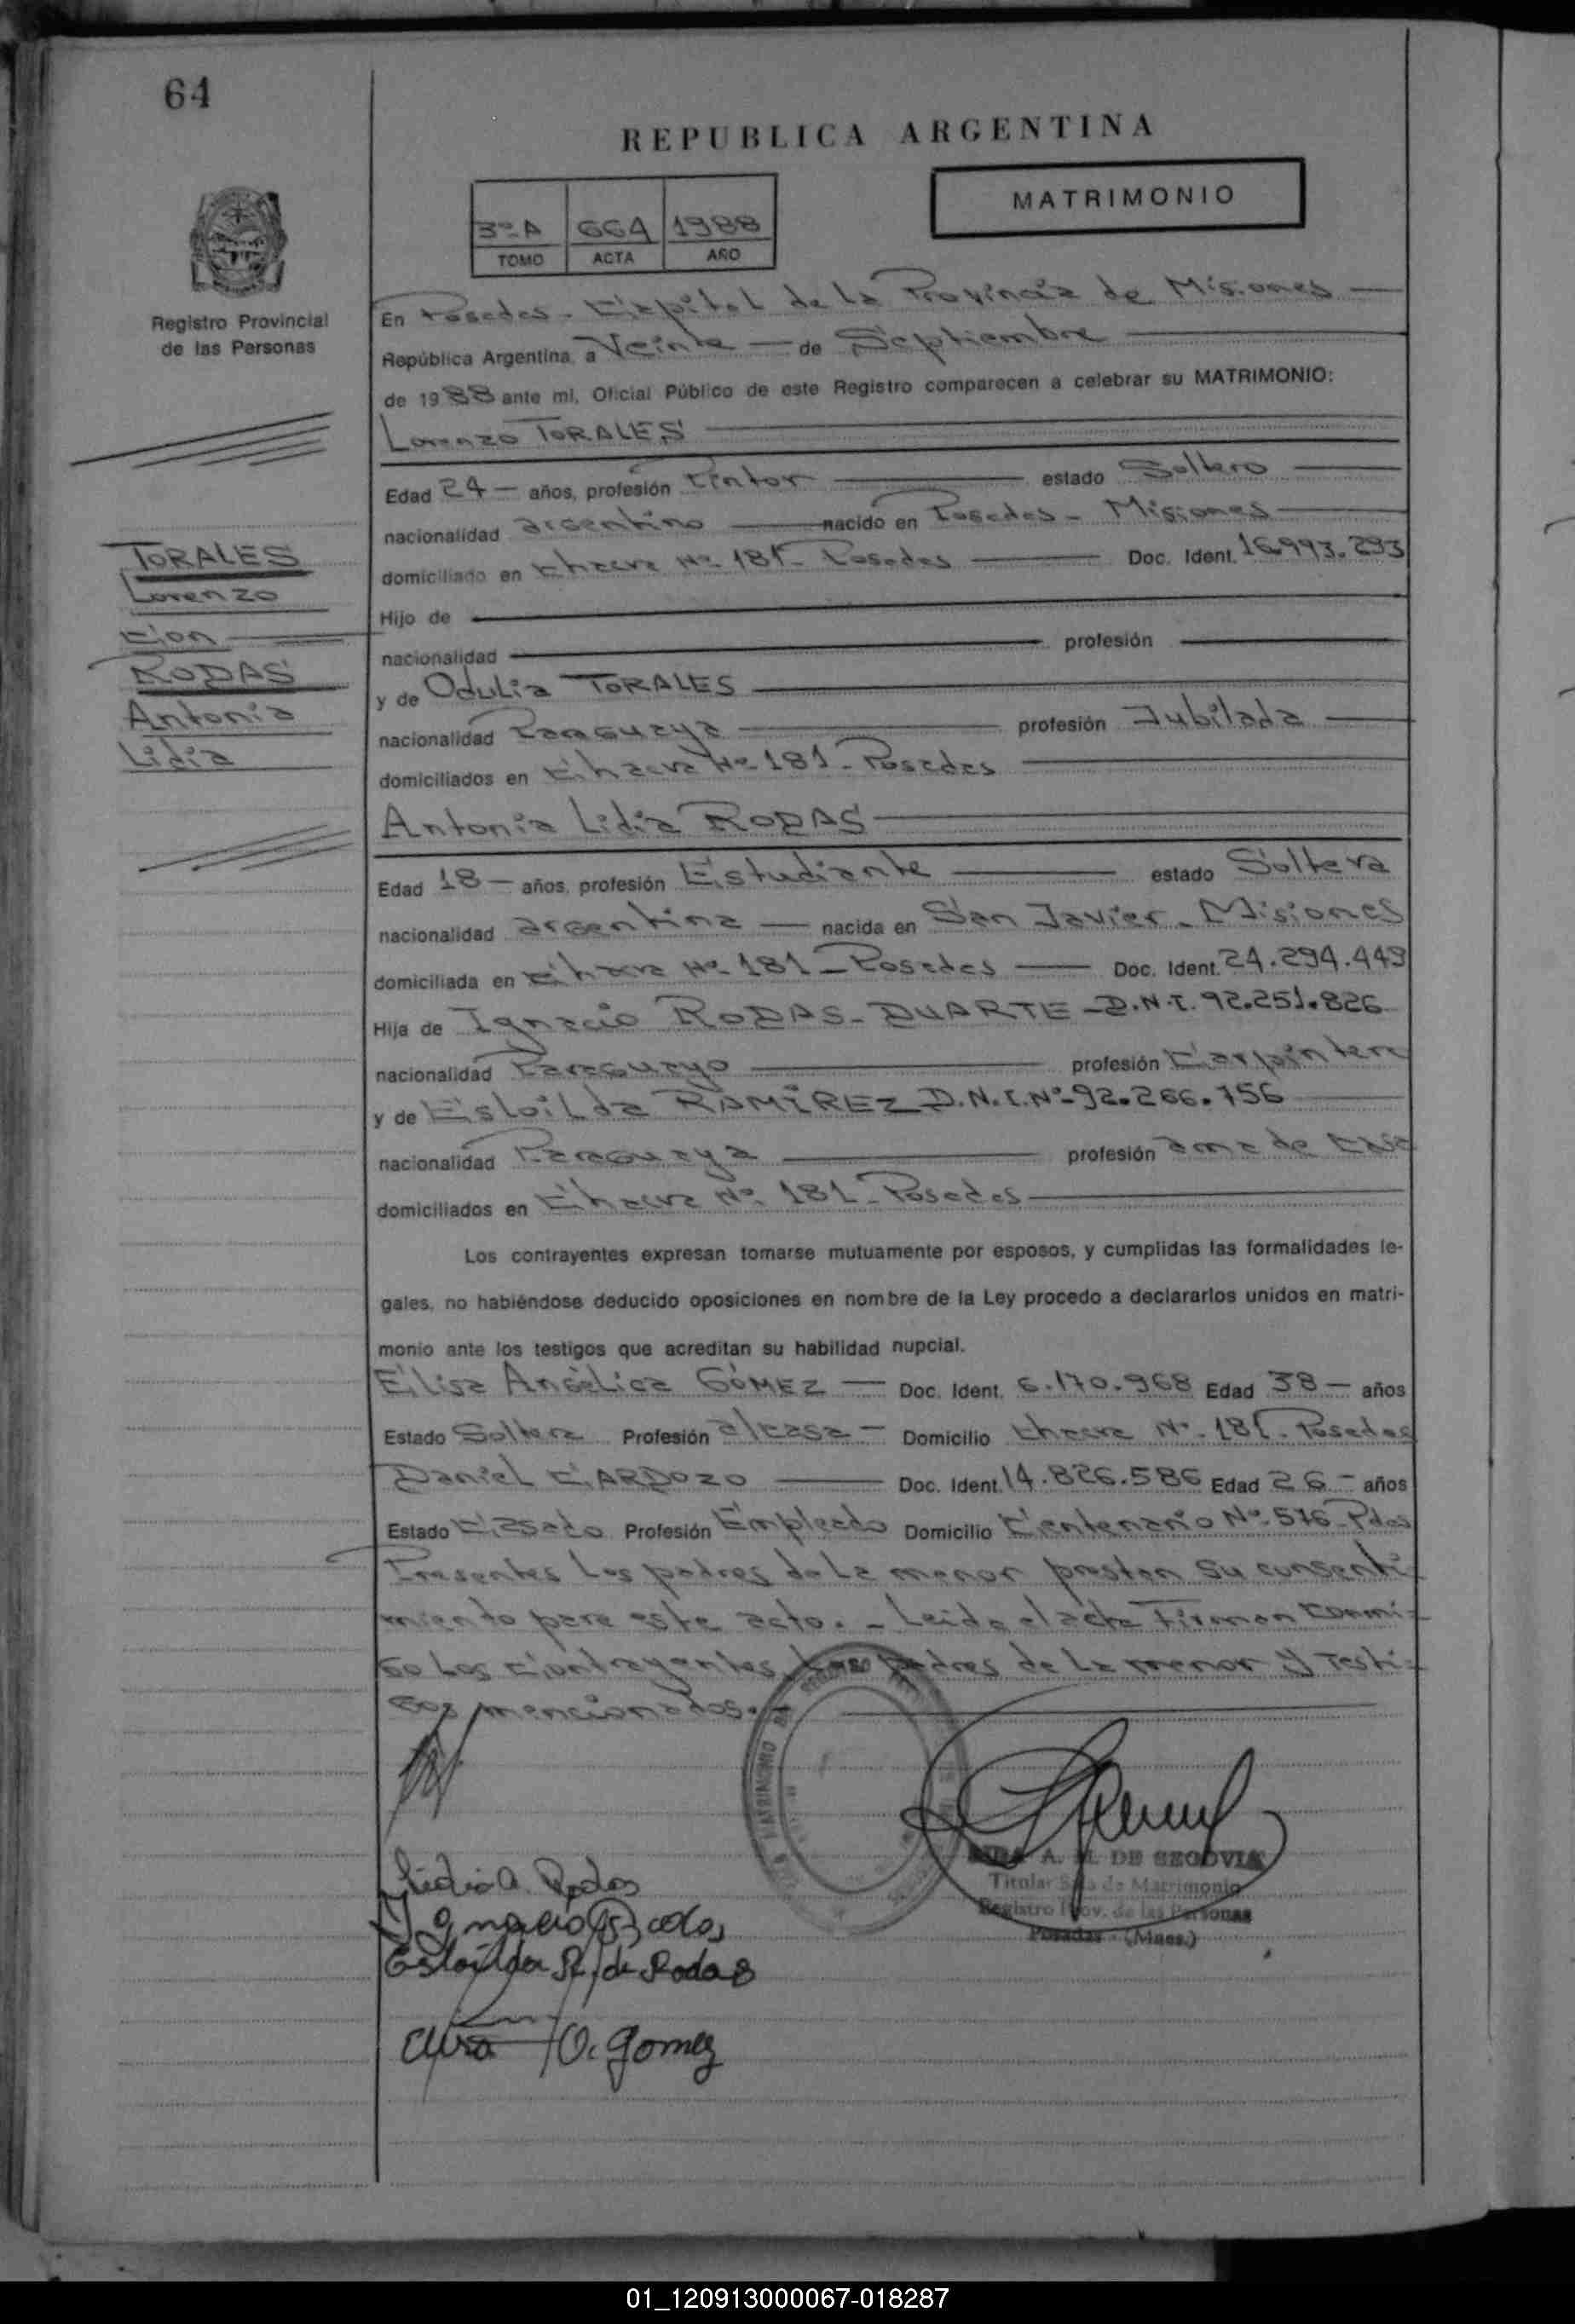 64
REPUBLICA ARGENTINA
MATRIMONIO
3º A 664 1988
TOMO ACTA AÑO
Registro Provincial
de las Personas
En Posadas - Capital de la Provincia de Misiones
República Argentina, a Veinte de Septiembre
de 1988 ante mi, Oficial Público de este Registro comparecen a celebrar su MATRIMONIO:
Lorenzo TORALES
Edad 24 años, profesión Pintor estado Soltero
nacionalidad argentino nacido en Posadas - Misiones
domiciliado en Chacra Nº 181 - Posadas Doc. Ident. 16.993.293
Hijo de
nacionalidad profesión
y de Odulia TORALES
nacionalidad Paraguaya profesión Jubilada
domiciliados en Chacra Nº 181 - Posadas
Antonia Lidia RODAS
TORALES
Lorenzo
Con
RODAS
Antonia
Lidia
Edad 18 años, profesión Estudiante estado Soltera
nacionalidad argentina nacida en San Javier - Misiones
domiciliada en Chacra Nº 181 - Posadas Doc. Ident. 24.294.449
Hija de Ignacio RODAS - DUARTE - D.N.I. 92.251.826
nacionalidad Paraguayo profesión Carpintero
y de Esloilda RAMIREZ D.N.I. Nº 92.266.756
nacionalidad Paraguaya profesión ama de casa
domiciliados en Chacra Nº 181 - Posadas
Los contrayentes expresan tomarse mutuamente por esposos, y cumplidas las formalidades le-
gales, no habiéndose deducido oposiciones en nombre de la Ley procedo a declararlos unidos en matri-
monio ante los testigos que acreditan su habilidad nupcial.
Elisa Angélica GÓMEZ Doc. Ident. 6.170.968 Edad 38 años
Estado Soltera Profesión a/casa Domicilio Chacra Nº 181 - Posadas
Daniel CARDOZO Doc. Ident. 14.826.586 Edad 26 años
Estado Casado Profesión Empleado Domicilio Centenario Nº 576 Pdas
Presentes los padres de la menor prestan su consenti-
miento para este acto. - Leida el acta Firman conmi-
go los contrayentes, los padres de la menor y Testi-
gos mencionados.
Lidia A. Rodas
Ignacio Rodas
Esloilda R. de Rodas
O. Gomez
A. M. DE SEGOVIA
Titular Sala de Matrimonio
Registro Prov. de las Personas
Posadas - (Mnes.)
01_120913000067-018287